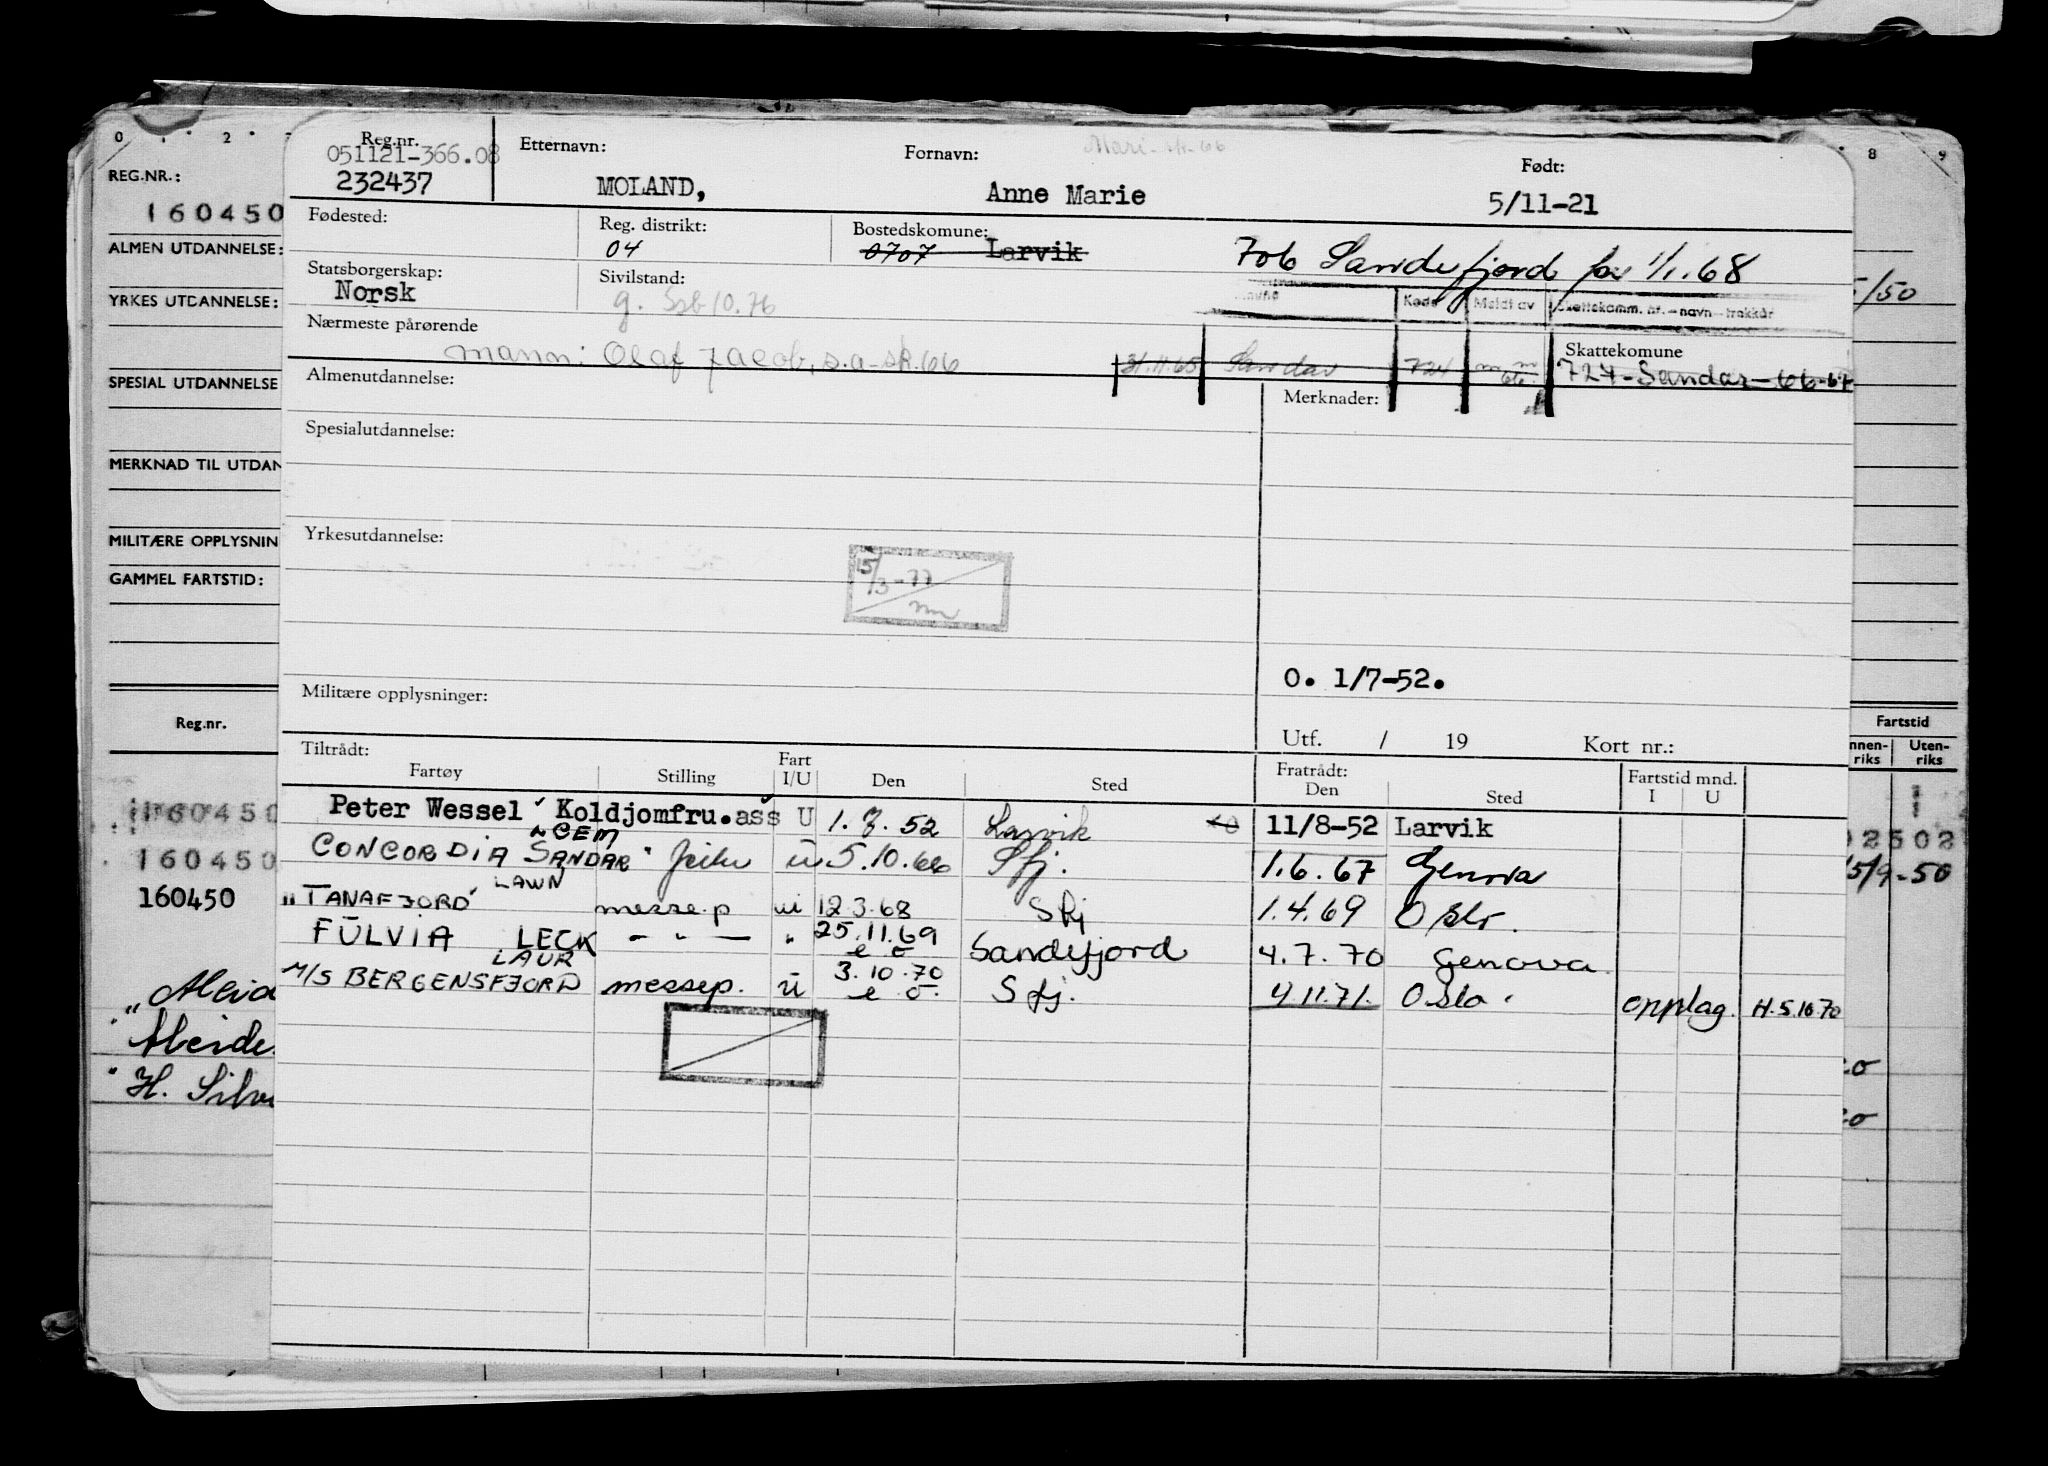 0 · 1 · 2 · 8 9
Reg.nr. Etternavn: Fornavn: Født:
051121-366.08
232437 MOLAND, Anne Marie 5/11-21
Fødested: Reg. distrikt: Bostedskomune:
04 0707 Larvik 706 Sandefjord 1/1.68
Statsborgerskap: Sivilstand:
Norsk g. 10.76
Kode Meldt av Skattekomm. nr. - navn - trekkår
Nærmeste pårørende Skattekomune
mann: Olaf Jacob, s.a. 66 31.11.65 Sandar 724 724-Sandar-66-67
Almenutdannelse: Merknader:
Spesialutdannelse:
Yrkesutdannelse:
15/3-77
O. 1/7-52.
Militære opplysninger:
Utf. / 19 Kort nr.:
Tiltrådt: Fratrådt: Fartstid mnd.
Fartøy Stilling Fart I/U Den Sted Den Sted I U
Peter Wessel Koldjomfru.ass U 1.7.52 Larvik 11/8-52 Larvik
LCEM
CONCORDIA SANDAR u 5.10.66 Sfj. 1.6.67 Genova
LAWN
"TANAFJORD" messe.p u 12.3.68 Sfj 1.4.69 Oslo.
FULVIA LECK — " — " 25.11.69 Sandefjord 4.7.70 Genova
LAUR
M/S BERGENSFJORD messep. u 3.10.70 Sfj. 4.11.71. Oslo opplag. H.5.10.70
REG.NR.:
160450
ALMEN UTDANNELSE:
YRKES UTDANNELSE: /50
SPESIAL UTDANNELSE
MERKNAD TIL UTDAN
MILITÆRE OPPLYSNIN
GAMMEL FARTSTID:
Reg.nr. Fartstid
nnen-riks Uten-riks
160450
160450 02502
160450 15/9-50
H.